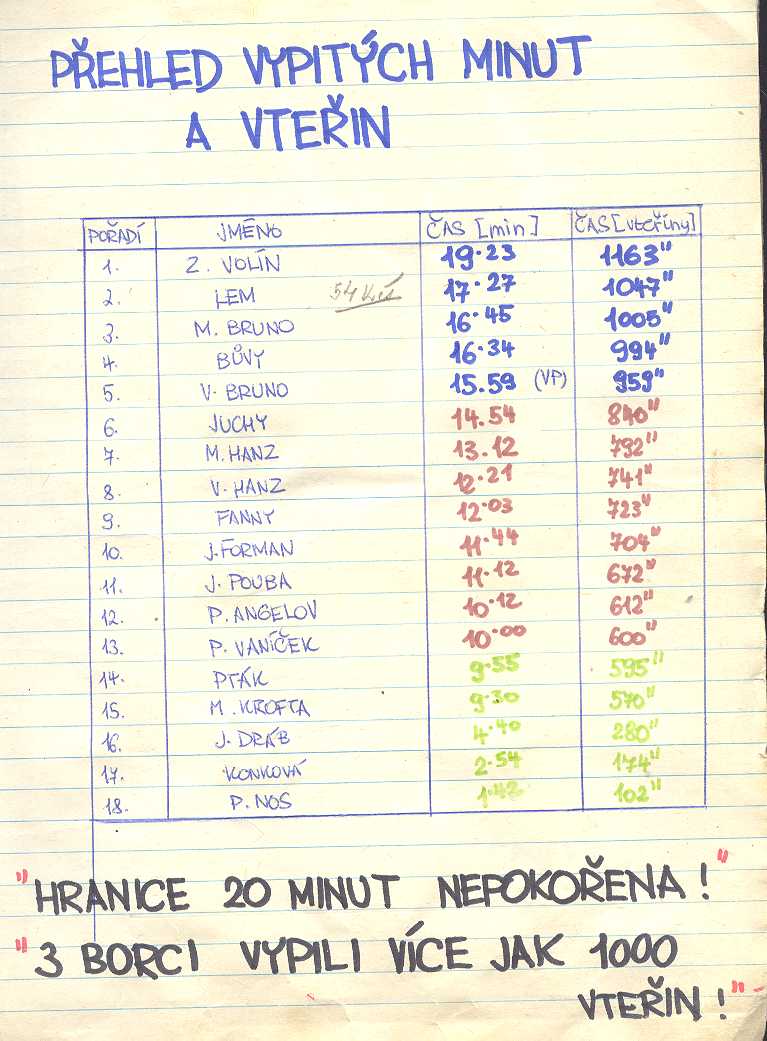 PŘEHLED VYPITÝCH MINUT
A VTEŘIN
POŘADÍ JMÉNO ČAS [min] ČAS [vteřiny]
1. Z. VOLÍN 19.23 1163"
2. LEM 54 Kčs 17.27 1047"
3. M. BRUNO 16.45 1005"
4. BŮVY 16.34 994"
5. V. BRUNO 15.59 (VP) 959"
6. JUCHY 14.54 840"
7. M. HANZ 13.12 792"
8. V. HANZ 12.21 741"
9. FANNY 12.03 723"
10. J. FORMAN 11.44 704"
11. J. POUBA 11.12 672"
12. P. ANGELOV 10.12 612"
13. P. VANÍČEK 10.00 600"
14. PTÁK 9.55 595"
15. M. KROFTA 9.30 570"
16. J. DRÁB 4.40 280"
17. KONKOVÁ 2.54 174"
18. P. NOS 1.42 102"
"HRANICE 20 MINUT NEPOKOŘENA!"
"3 BORCI VYPILI VÍCE JAK 1000
VTEŘIN!"-